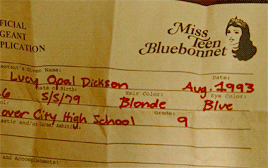 FICIAL
GEANT
PLICATION
Miss
Teen
Bluebonnet
Date:
Lucy Opal Dickson Aug. 1993
Date of Birth: Hair Color: Eye Color:
6 5/5/79 Blonde Blue
Grade:
over City High School 9
and Accomplishments: